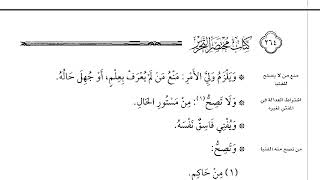 ٢٦٤
كتاب مختصر التحرير
منع من لا يصلح للفتيا
* وَيَلْزَمُ وَلِيَّ الْأَمْرِ: مَنْعُ مَنْ لَمْ يُعْرَفْ بِعِلْمٍ، أَوْ جُهِلَ حَالُهُ.
اشتراط العدالة في المفتي لغيره
* وَلَا تَصِحُّ(١): مِنْ مَسْتُورِ الْحَالِ.
* وَيُفْتِي فَاسِقٌ نَفْسَهُ.
من تصح منه الفتيا
* وَتَصِحُّ:
(١) مِنْ حَاكِمٍ.